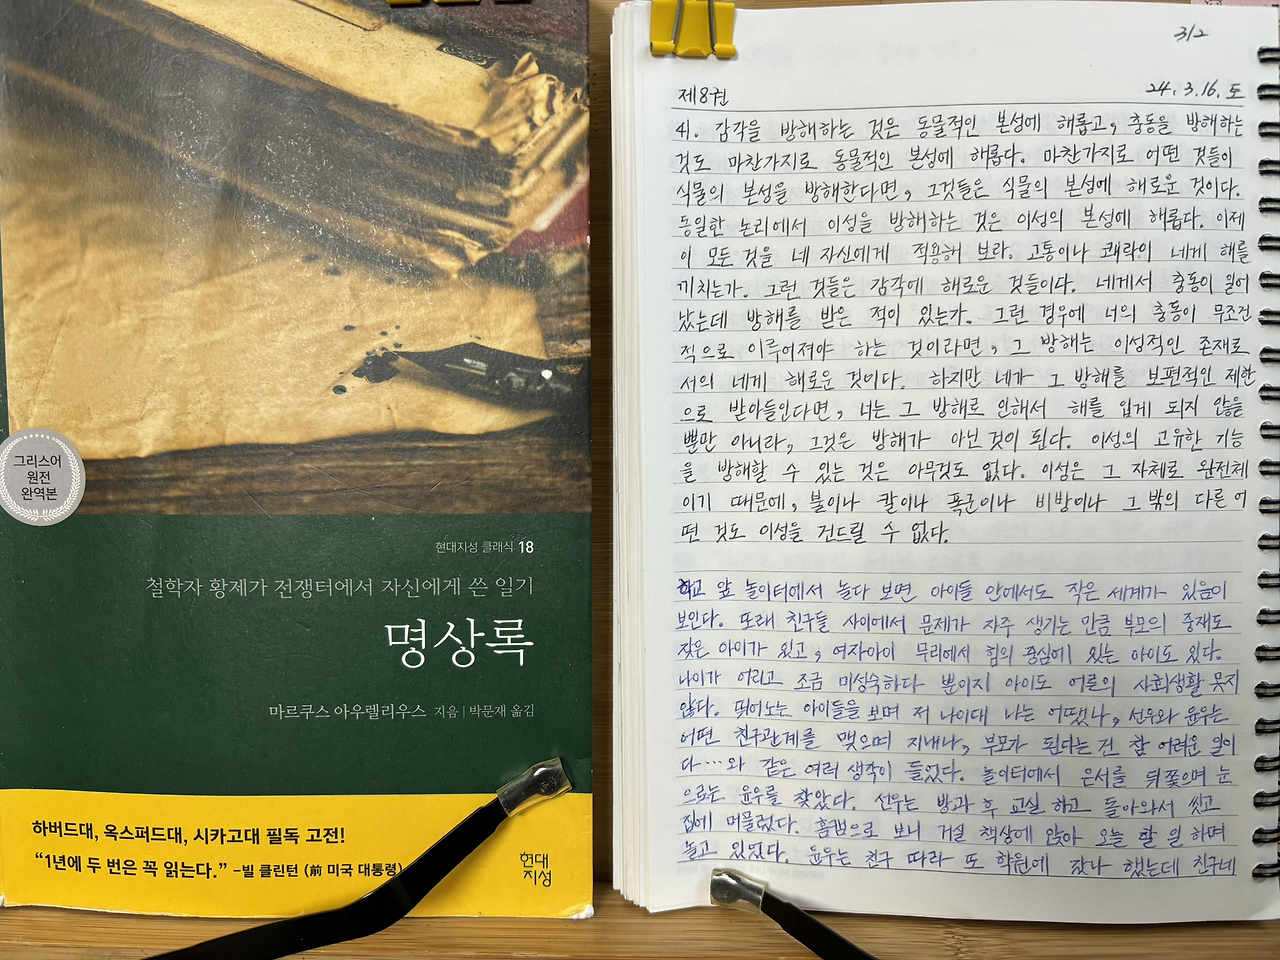 그리스어
원전
완역본
현대지성 클래식 18
철학자 황제가 전쟁터에서 자신에게 쓴 일기
명상록
마르쿠스 아우렐리우스 지음 | 박문재 옮김
하버드대, 옥스퍼드대, 시카고대 필독 고전!
“1년에 두 번은 꼭 읽는다.” –빌 클린턴 (前 미국 대통령)
현대
지성
312
제8권 24.3.16.토
41. 감각을 방해하는 것은 동물적인 본성에 해롭고, 충동을 방해하는
것도 마찬가지로 동물적인 본성에 해롭다. 마찬가지로 어떤 것들이
식물의 본성을 방해한다면, 그것들은 식물의 본성에 해로운 것이다.
동일한 논리에서 이성을 방해하는 것은 이성의 본성에 해롭다. 이제
이 모든 것을 네 자신에게 적용해 보라. 고통이나 쾌락이 네게 해를
끼치는가. 그런 것들은 감각에 해로운 것들이다. 네게서 충동이 일어
났는데 방해를 받은 적이 있는가. 그런 경우에 너의 충동이 무조건
적으로 이루어져야 하는 것이라면, 그 방해는 이성적인 존재로
서의 네게 해로운 것이다. 하지만 네가 그 방해를 보편적인 제한
으로 받아들인다면, 너는 그 방해로 인해서 해를 입게 되지 않을
뿐만 아니라, 그것은 방해가 아닌 것이 된다. 이성의 고유한 기능
을 방해할 수 있는 것은 아무것도 없다. 이성은 그 자체로 완전체
이기 때문에, 불이나 칼이나 폭군이나 비방이나 그 밖의 다른 어
떤 것도 이성을 건드릴 수 없다.
학교 앞 놀이터에서 놀다 보면 아이들 안에서도 작은 세계가 있음이
보인다. 또래 친구들 사이에서 문제가 자주 생기는 만큼 부모의 중재도
잦은 아이가 있고, 여자아이 무리에서 힘의 중심에 있는 아이도 있다.
나이가 어리고 조금 미성숙하다 뿐이지 아이도 어른의 사회생활 못지
않다. 뛰어노는 아이들을 보며 저 나이대 나는 어땠나, 선우와 윤우는
어떤 친구관계를 맺으며 지내나, 부모가 된다는 건 참 어려운 일이
다…와 같은 여러 생각이 들었다. 놀이터에서 은서를 뒤쫓으며 눈
으로는 윤우를 찾았다. 선우는 방과 후 교실 하고 돌아와서 씻고
집에 머물렀다. 홈캠으로 보니 거실 책상에 앉아 오늘 할 일 하며
놀고 있었다. 윤우는 친구 따라 또 학원에 갔나 했는데 친구네